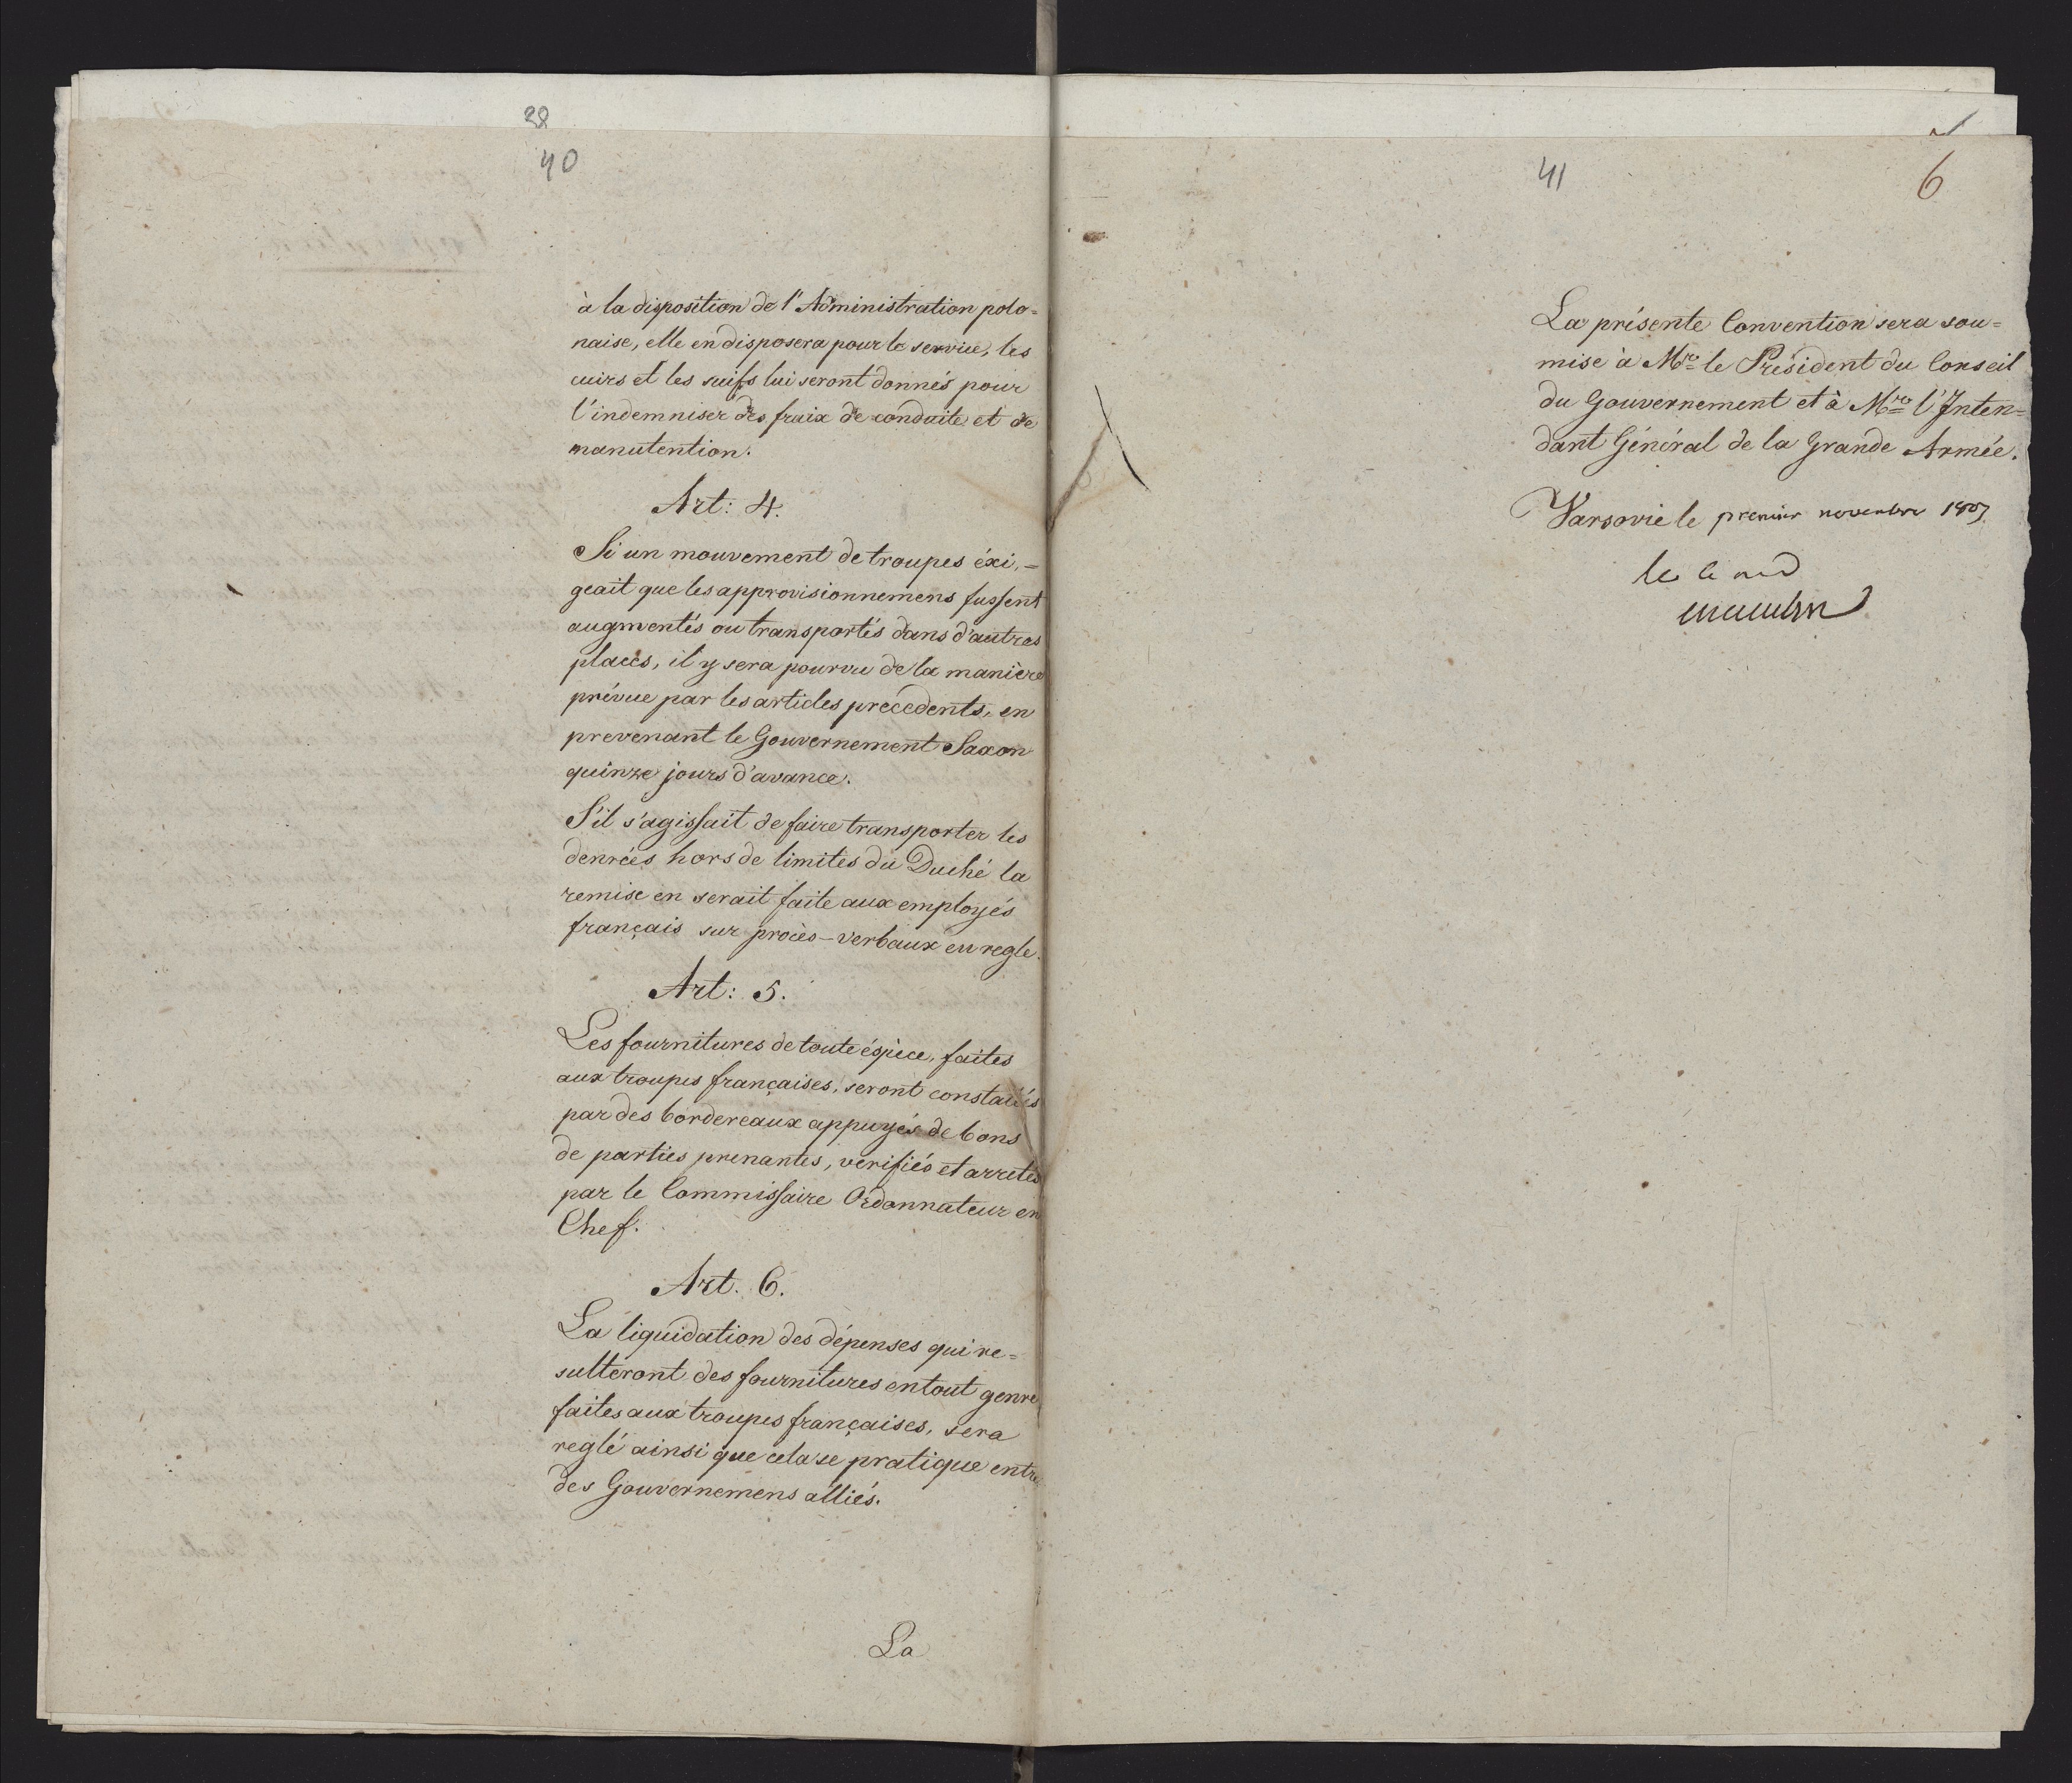 38
40
à la disposition de l'Administration polo=
naise, elle en disposera pour le service, les
cuirs et les suifs lui seront donnés pour
l'indemniser des fraix de conduite et de
manutention.
Art: 4.
Si un mouvement de troupes éxi,=
geait que les approvisionnemens fussent
augmentés ou transportés dans d'autres
places, il y sera pourvu de la manière
prévue par les articles précedents, en
prevenant le Gouvernement Saxon
quinze jours d'avance.
S'il s'agissait de faire transporter les
denrées hors de limites du Duché la
remise en serait faite aux employés
français sur procès-verbaux en regle.
Art: 5.
Les fournitures de toute éspèce, faites
aux troupes françaises, seront constatés
par des bordereaux appuyés de bons
de parties prenantes, verifiés et arretés
par le Commissaire Ordonnateur en
Chef.
Art. 6.
La liquidation des dépenses qui re=
sulteront des fournitures en tout genre
faites aux troupes françaises, sera
reglé ainsi que cela se pratique entre
des Gouvernemens alliés.
La
41
6
La présente Convention sera sou=
mise à Mr. le Président du Conseil
du Gouvernement et à Mr. l'Inten=
dant Général de la Grande Armée.
Varsovie le premier novembre 1807